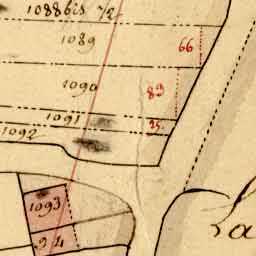 1088 bis 1/2
1089
66
1090
89
1091
25.
1092
1093
94
La